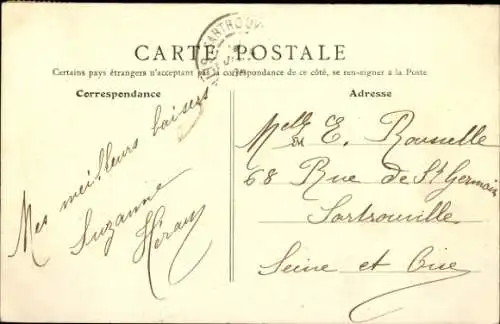 CARTE POSTALE
Certains pays étrangers n'acceptant pas la correspondance de ce côté, se renseigner à la Poste
Correspondance
Adresse
Mes meilleurs baisers
Suzanne
Melle E. Rousselle
68 Rue de St Germain
Sartrouville
Seine et Oise
SARTROUV